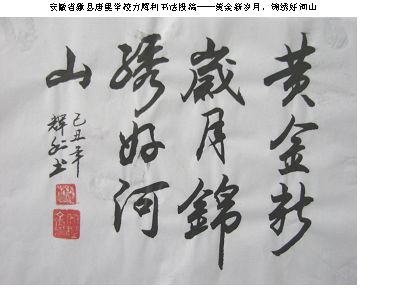 安徽省歙县唐里学校方辉利书法投稿——黄金新岁月，锦绣好河山
黄金新
歲月錦
綉好河
山
己丑年
輝利书